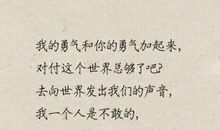 我的勇气和你的勇气加起来，
对付这个世界总够了吧?
去向世界发出我们的声音，
我一个人是不敢的，